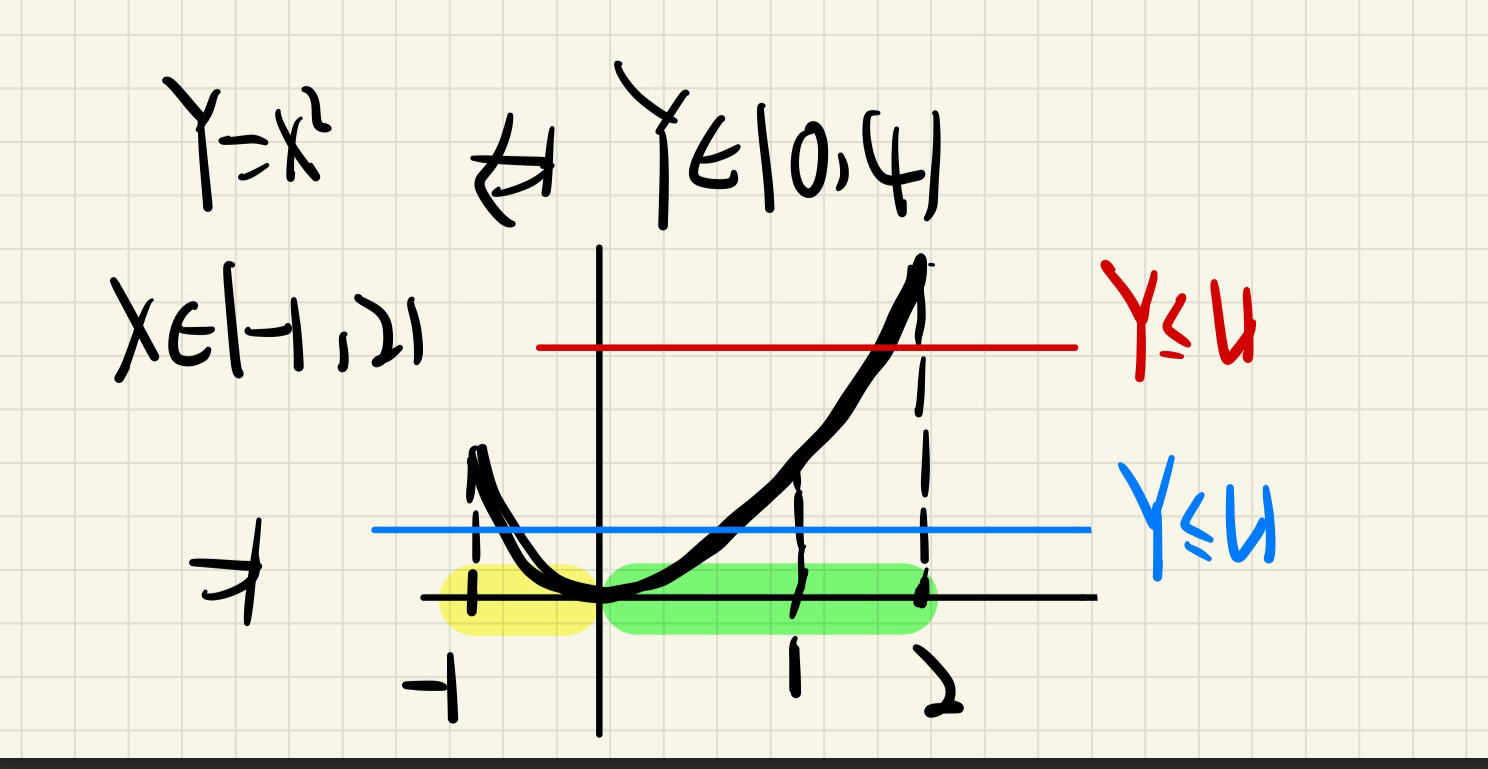 Y=x² ⇒ Y∈[0,4]
X∈[-1,2]
Y≤u
Y≤u
⇒
-1 1 2